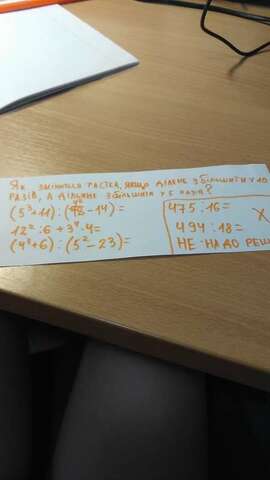 Як зміниться частка, якщо ділене збільшити у 10
разів, а дільник збільшити у 5 разів?
(5³+11):(48-14)=
12²:6+3⁴·4=
(4³+6):(5²-23)=
475:16=
494:18=
НЕ НАДО РЕШ